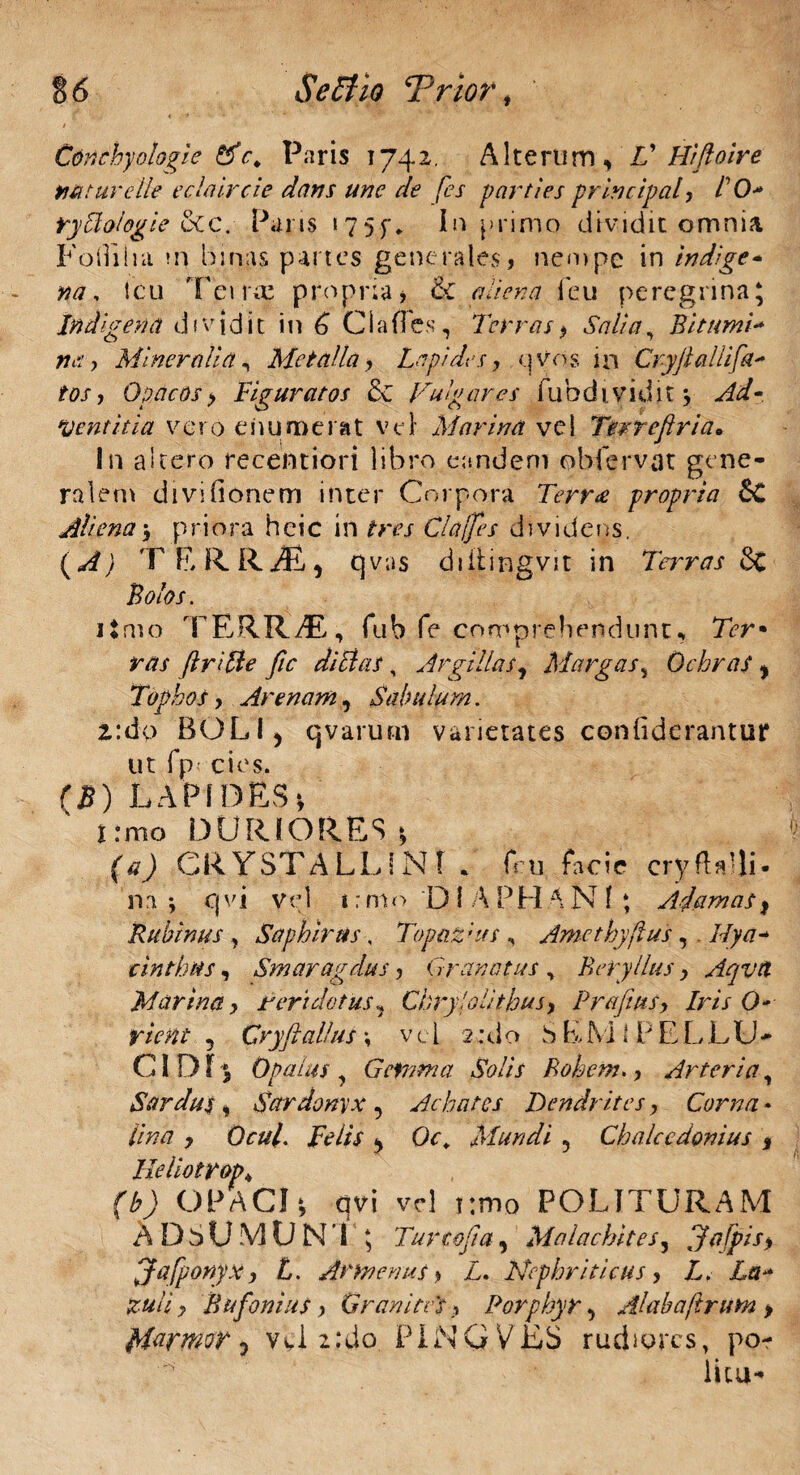 86 Sectio Prior,
Conchyologie &c. Paris 1742. Alterum, L' Histoire
naturelle eclaircie dans une de ses parties principal, l'O-
ryctologie &c. Paris 1755. In primo dividit omnia
Fossilia in binas partes generales, nempe in indige-
na, seu Terræ propria, & aliena seu peregrina;
Indigena dividit in 6 Classes, Terras, Salia, Bitumi-
na, Mineralia, Metalla, Lapides, qvos in Crystallisa-
tos, Opacos, Figuratos & Vulgares subdividit; Ad-
ventitia vero enumerat vel Marina vel Terrestria.
In altero recentiori libro eandem observat gene-
ralem divisionem inter Corpora Terræ propria &
Aliena; priora heic in tres Classes dividens.
(A) TERRÆ, qvas distingvit in Terras &
Bolos.
1:mo TERRÆ, sub se comprehendunt, Ter-
ras stricte sic dictas, Argillas, Margas, Ochras,
Tophos, Arenam, Sabulum.
2:do BOLI, qvarum varietates considerantur
ut species.
(B) LAPIDES;
1:mo DURIORES;
(a) CRYSTALLINI. seu facie crystalli-
na; qvi vel 1:mo DIAPHANI; Adamas,
Rubinus, Saphirus, Topazius, Amethystus, Hya-
cinthus, Smaragdus, Granatus, Beryllus, Aqva
Marina, Peridotus, Chrysolithus, Prasius, Iris O-
rient, Crystallus; vel 2:do SEMIPELLU-
CIDI; Opalus, Gemma Solis Bohem., Arteria,
Sardus, Sardonyx, Achates Dendrites, Corna-
lina, Ocul. Felis, Oc. Mundi, Chalcedonius,
Heliotrop.
(b) OPACI; qvi vel 1:mo POLITURAM
ADSUMUNT; Turcosia, Malachites, Jaspis,
Jasponyx, L. Armenus, L. Nephriticus, L. La-
zuli, Bufonius, Granites, Porphyr, Alabastrum,
Marmor, vel 2:do PINGVES rudiores, po-
litu-